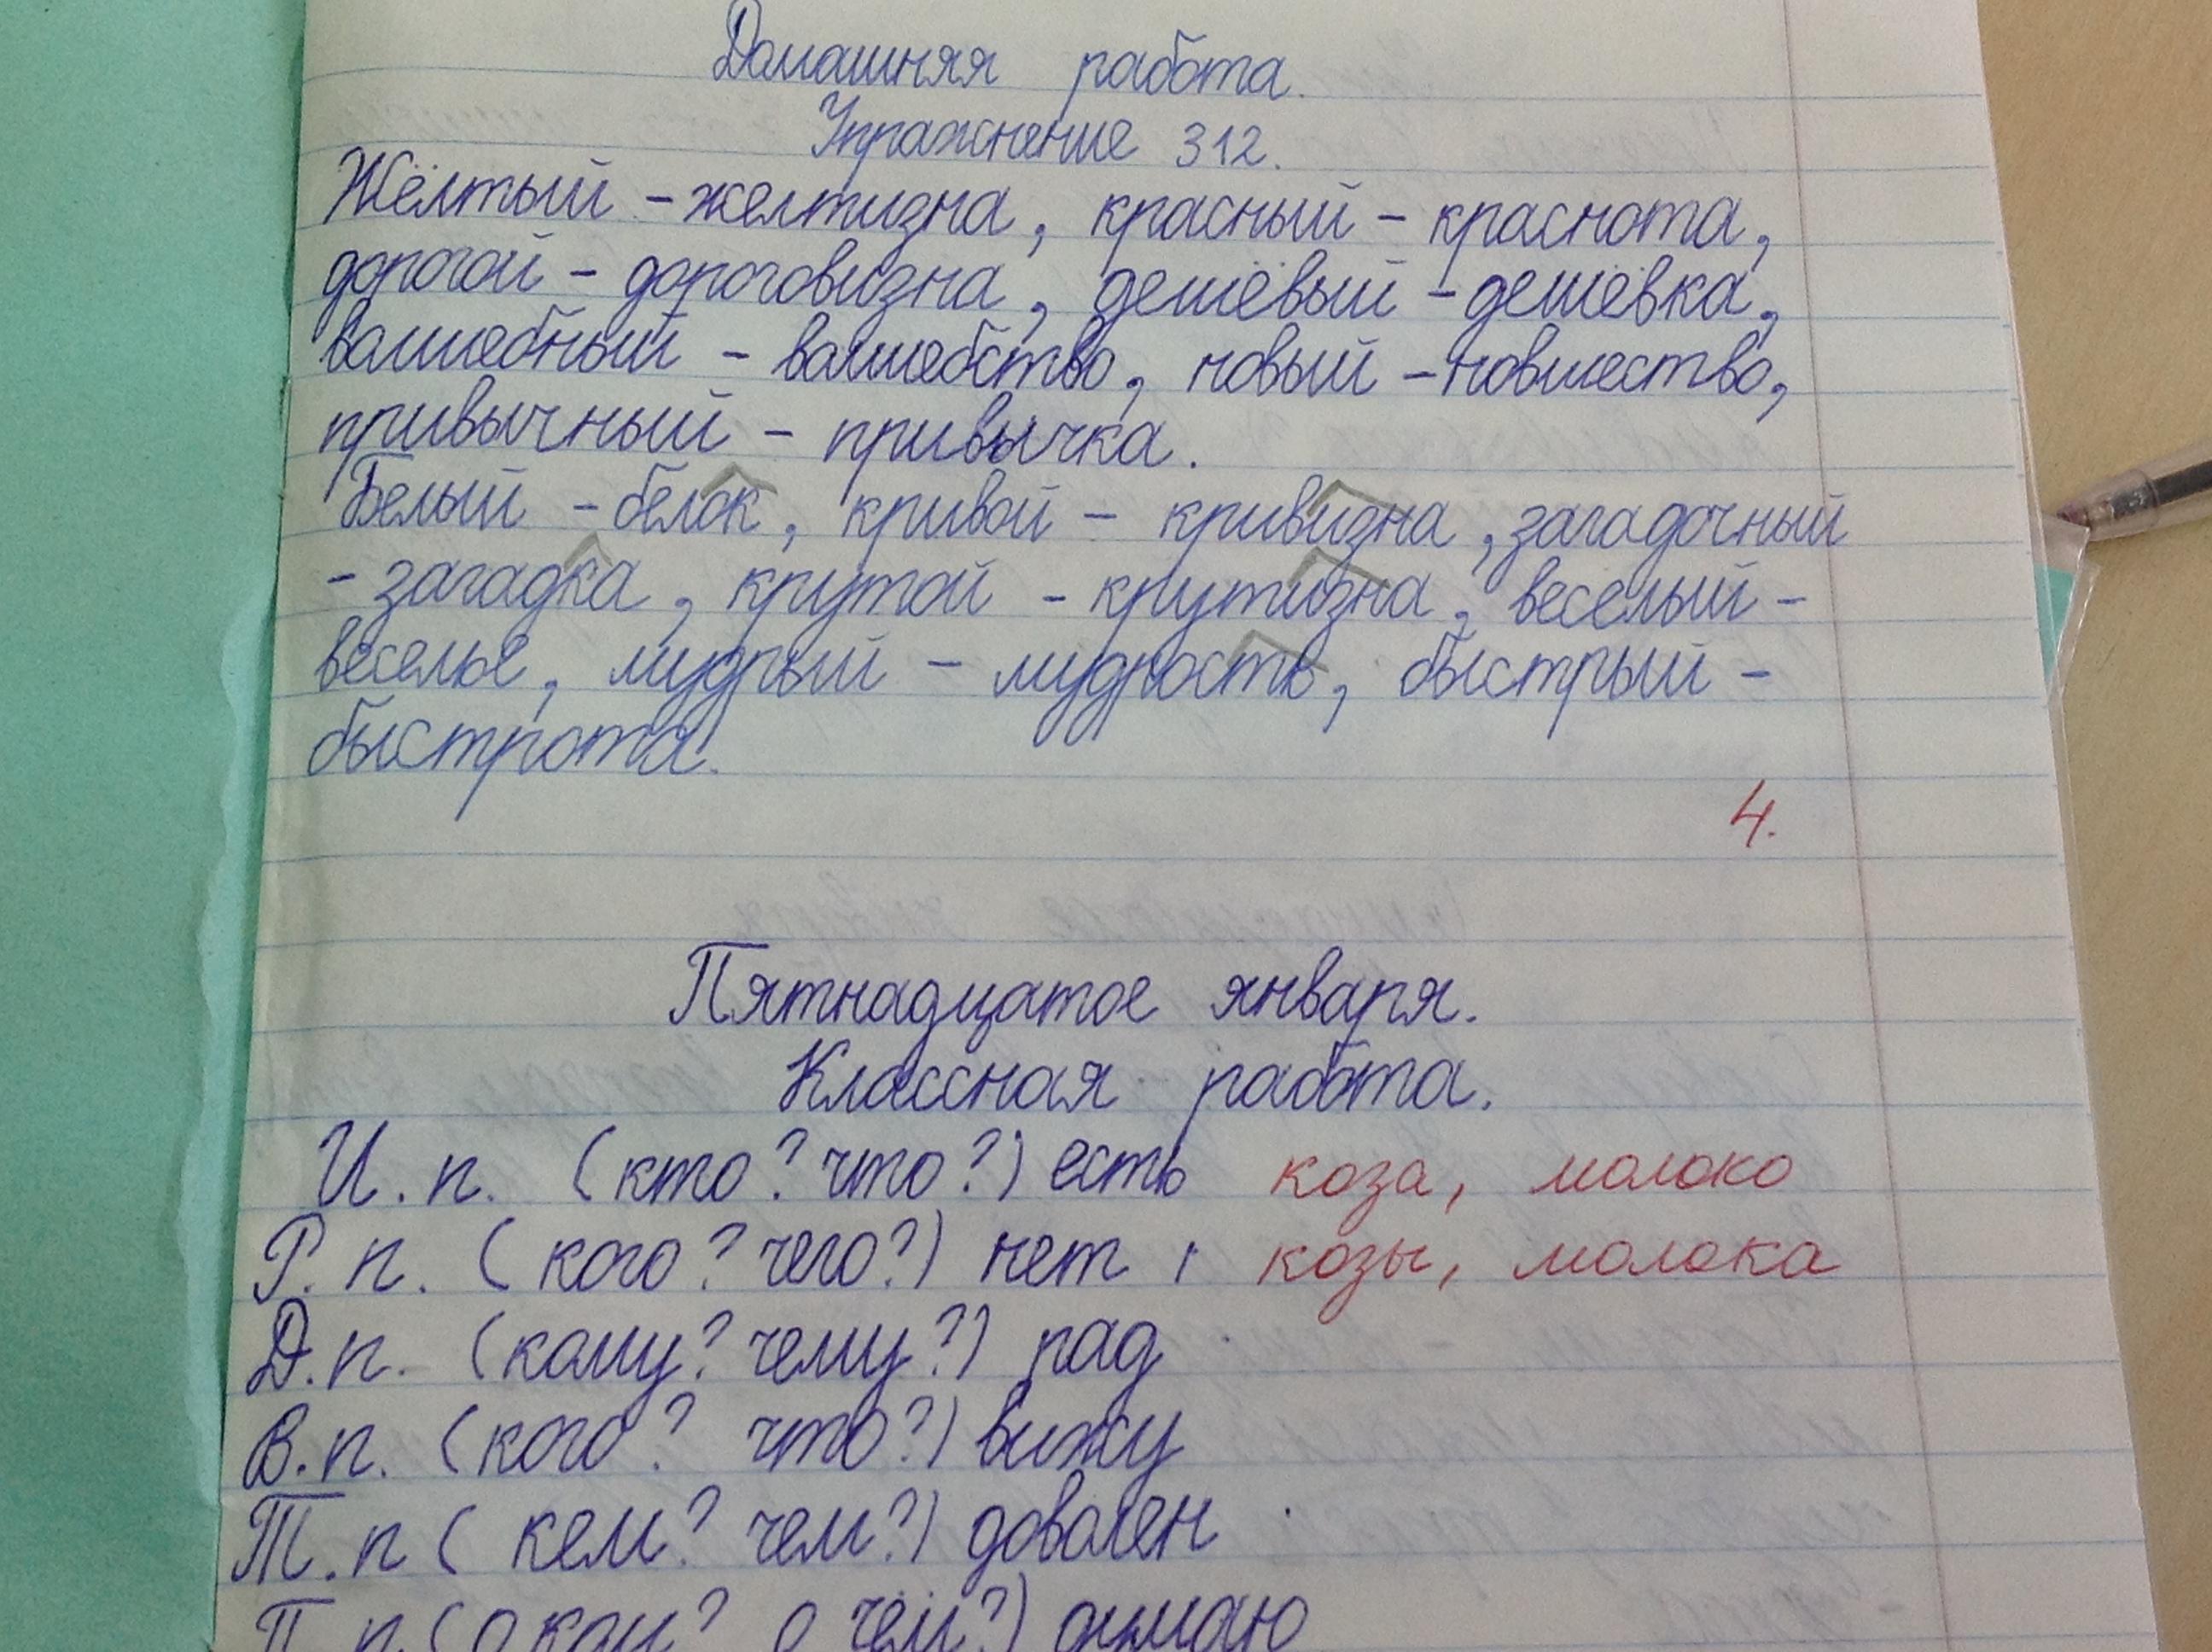 Домашняя работа.
Упражнение 312.
Жёлтый - желтизна, красный - краснота,
дорогой - дороговизна, дешёвый - дешёвка,
волшебный - волшебство, новый - новшество,
привычный - привычка.
Белый - белок, кривой - кривизна, загадочный
- загадка, крутой - крутизна, веселый -
веселье, мудрый - мудрость, быстрый -
быстрота.
4.
Пятнадцатое января.
Классная работа.
И. п. (кто? что?) есть коза, молоко
Р. п. (кого? чего?) нет козы, молока
Д. п. (кому? чему?) рад
В. п. (кого? что?) вижу
Т. п ( кем? чем?) доволен
П. п (о ком? о чём?) думаю